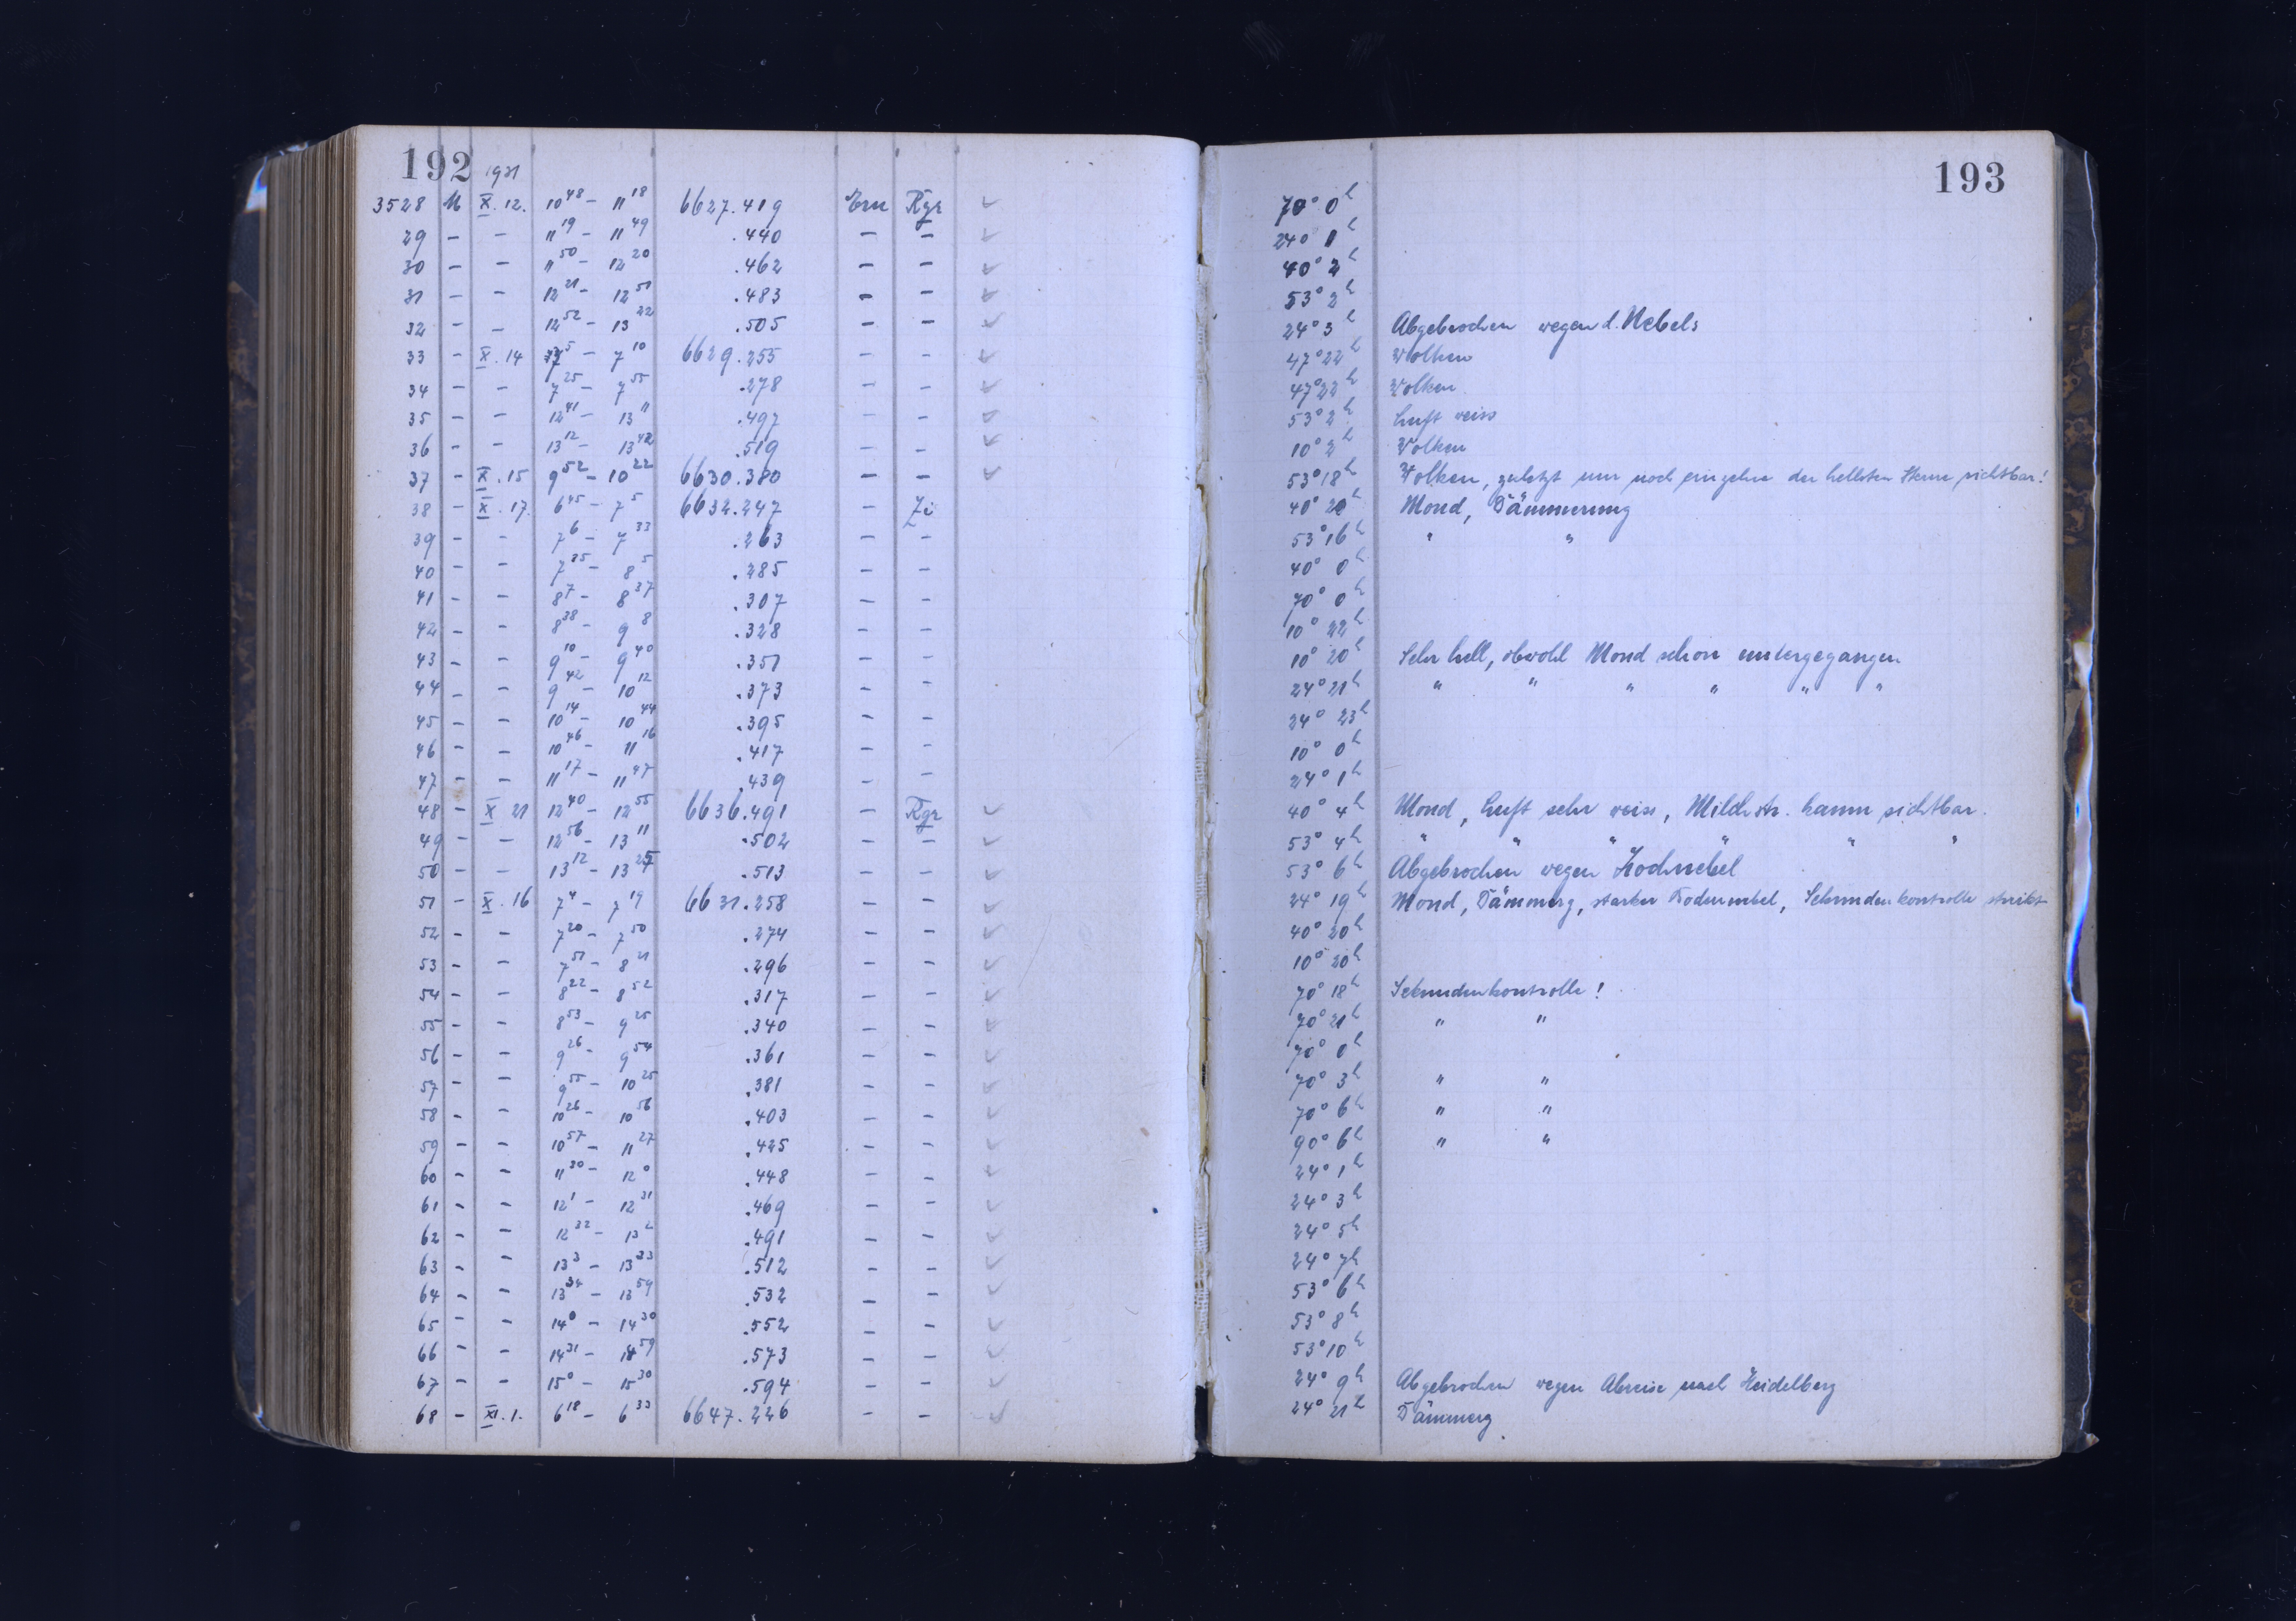 192
1931
3528 M X. 12. 10 48 – 11 18 6627.419 Ern Rgr
29 – – 11 19 – 11 49 .440 – –
30 – – 11 50 – 12 20 .462 – –
31 – – 12 21 – 12 51 .483 – –
32 – – 12 52 – 13 22 .505 – –
33 – X. 14 5 – 7 10 6629.255 – –
34 – – 7 25 – 7 55 .278 – –
35 – – 12 41 – 13 11 .497 – –
36 – – 13 12 – 13 42 .519 – –
37 – X. 15 9 52 – 10 22 6630.380 – –
38 – X. 17. 6 45 – 7 5 6632.247 – Zi
39 – – 7 6 – 7 33 .263 – –
40 – – 7 35 – 8 5 .285 – –
41 – – 8 7 – 8 37 .307 – –
42 – – 8 38 – 9 8 .328 – –
43 – – 9 10 – 9 40 .351 – –
44 – – 9 42 – 10 12 .373 – –
45 – – 10 14 – 10 44 .395 – –
46 – – 10 46 – 11 16 .417 – –
47 – – 11 17 – 11 47 .439 – –
48 – X 21 12 40 – 12 55 6636.491 – Rgr
49 – – 12 56 – 13 11 .502 – –
50 – – 13 12 – 13 27 .513 – –
51 – X. 16 7 4 – 7 19 6631.258 – –
52 – – 7 20 – 7 50 .274 – –
53 – – 7 51 – 8 21 .296 – –
54 – – 8 22 – 8 52 .317 – –
55 – – 8 53 – 9 25 .340 – –
56 – – 9 26 – 9 54 .361 – –
57 – – 9 55 – 10 25 .381 – –
58 – – 10 26 – 10 56 .403 – –
59 – – 10 57 – 11 27 .425 – –
60 – – 11 30 – 12 0 .448 – –
61 – – 12 1 – 12 31 .469 – –
62 – – 12 32 – 13 2 .491 – –
63 – – 13 3 – 13 33 .512 – –
64 – – 13 34 – 13 59 .532 – –
65 – – 14 0 – 14 30 .552 – –
66 – – 14 31 – 14 59 .573 – –
67 – – 15 0 – 15 30 .594 – –
68 – XI. 1. 6 18 – 6 33 6647.226 – –
193
70° 0h
24° 1h
40° 2h
53° 2h
24° 3h Abgebrochen wegen d. Nebels
47° 22h Wolken
47° 22h Wolken
53° 2h Luft weiss
10° 2h Wolken
53° 18h Wolken, zuletzt nur noch einzelne der hellsten Sterne sichtbar!
40° 20h Mond, Dämmerung
53° 16h " "
40° 0h
70° 0h
10° 22h
10° 20h Sehr hell, obwohl Mond schon untergegangen
24° 21h " " " " " "
24° 23h
10° 0h
24° 1h
40° 4h Mond, Luft sehr weiss, Milchstr. kaum sichtbar.
53° 4h " " " " " "
53° 6h Abgebrochen wegen Hochnebel
24° 19h Mond, Dämmerg, starker Bodennebel, Sekundenkontrolle streikt
40° 20h
10° 20h
70° 18h Sekundenkontrolle!
70° 21h " "
70° 0h
70° 3h " "
70° 6h " "
90° 6h " "
24° 1h
24° 3h
24° 5h
24° 7h
53° 6h
53° 8h
53° 10h
24° 9h Abgebrochen wegen Abreise nach Heidelberg
24° 21h Dämmerg